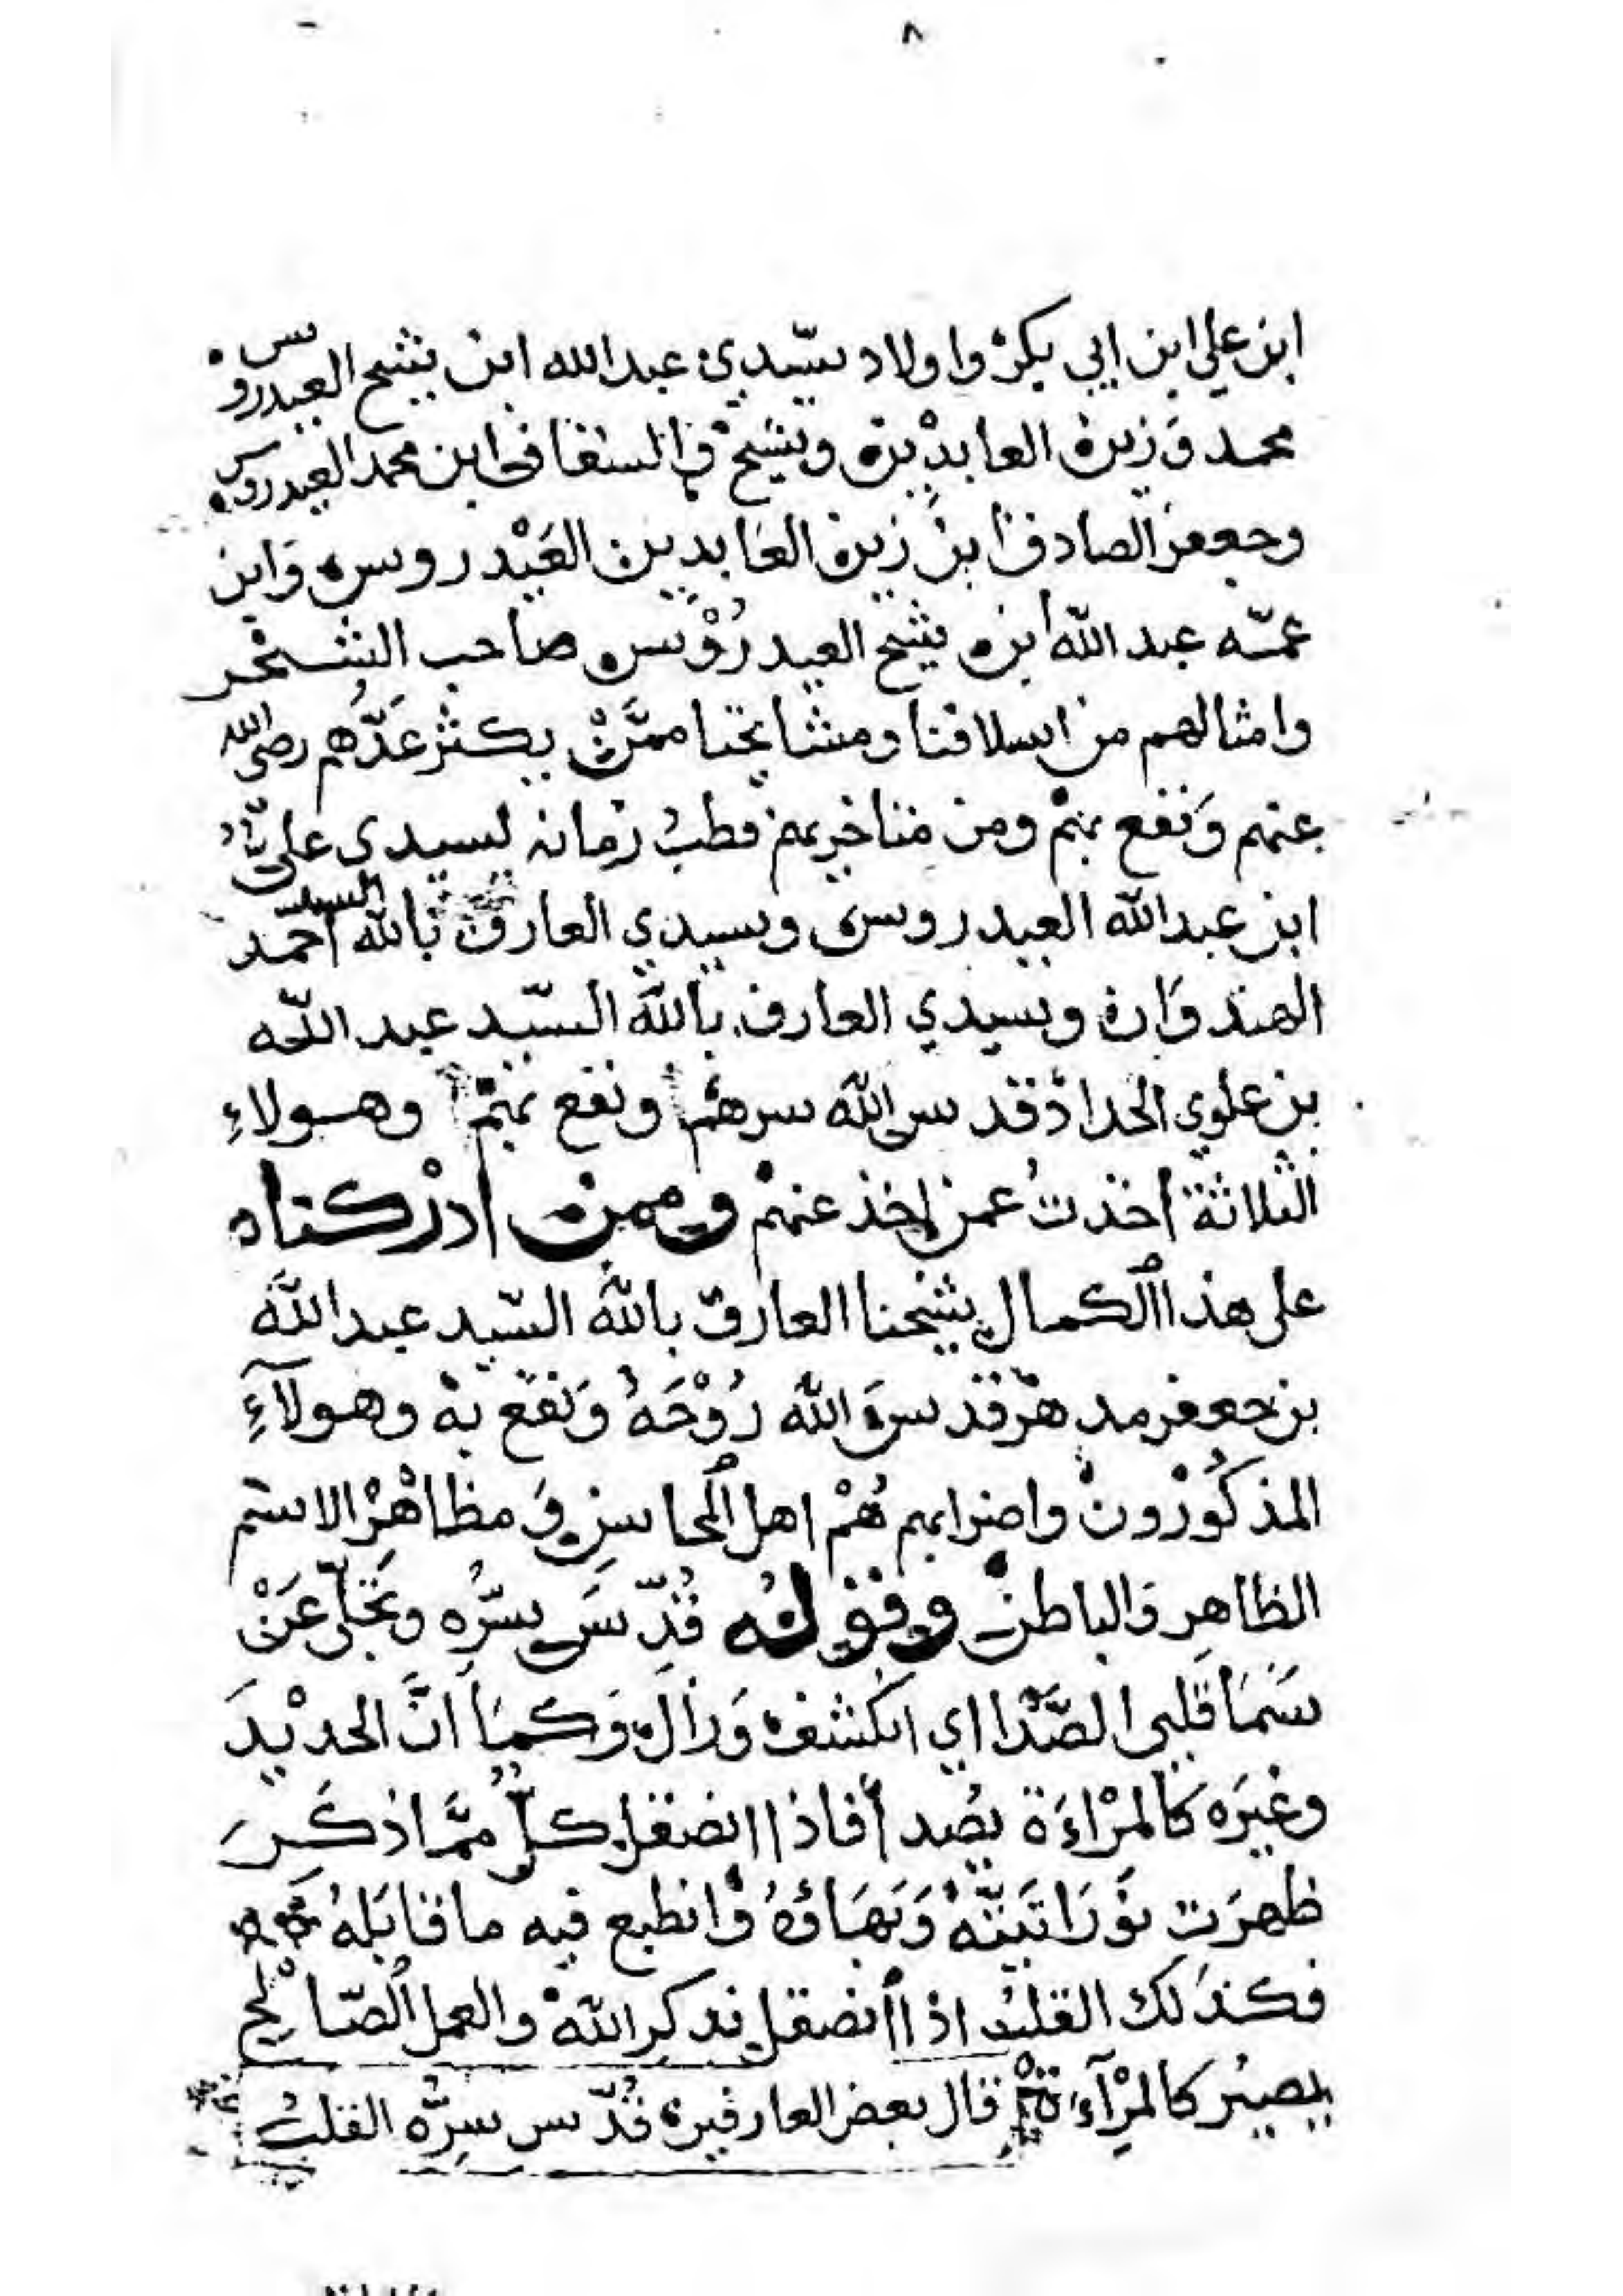 ٨
ابن علي ابن ابي بكر واولاد سيدي عبدالله ابن شيخ العيدروس
محمد وزين العابدين وشيخ والسقاف ابن محمد العيدروس
وجعفر الصادق ابن زين العابدين العيدروس وابن
عمّه عبد الله ابن شيخ العيدرُوْس صاحب الشحر
وامثالهم من اسلافنا ومشايخنا ممّن يكثر عَدُّهم رضى الله
عنهم ونفع بهم ومن متاخريهم قطبُ زمانه سيدي على
ابن عبدالله العيدروس وسيدي العارف بالله السيد احمد
الهندوان وسيدي العارف بالله السّيد عبد اللّه
بن علوي الحداد قدس الله سرهم ونفع بهم وهولاءِ
الثلاثة اخذتُ عمن اخذ عنهم وممن ادْركناه
على هذا الكمال شيخنا العارف بالله السّيد عبدالله
بن جعفر مدهر قدسَ الله رُوْحَهُ وَنفع به وهولآءِ
المذكُوْرون واضرابهم هُمْ اهل المحاسنِ ومظاهْرُ الاسْم
الظاهِر والباطن وقوله قُدِّسَ سِرُّه وتجلّى عَنْ
سَمَا قلبى الصَّدَا اي انكشف وَزَال وَكمَا انَّ الحديْدَ
وغيْرَه كالمرْاءَة يصْد أفاذا انصقل كلُّ ممَّا ذكَرَ
ظهرَت نوْرَانَيتّهُ وَبَهَاؤهُ وانطبع فيه ما قابَلهُ
فكذلك القلبُ اذا انصقل بذكرِ اللّه والعمل الصّالح
يصيْر كالمرْآءَة قال بعض العارفين قُدّس سِرُّه القلبُ